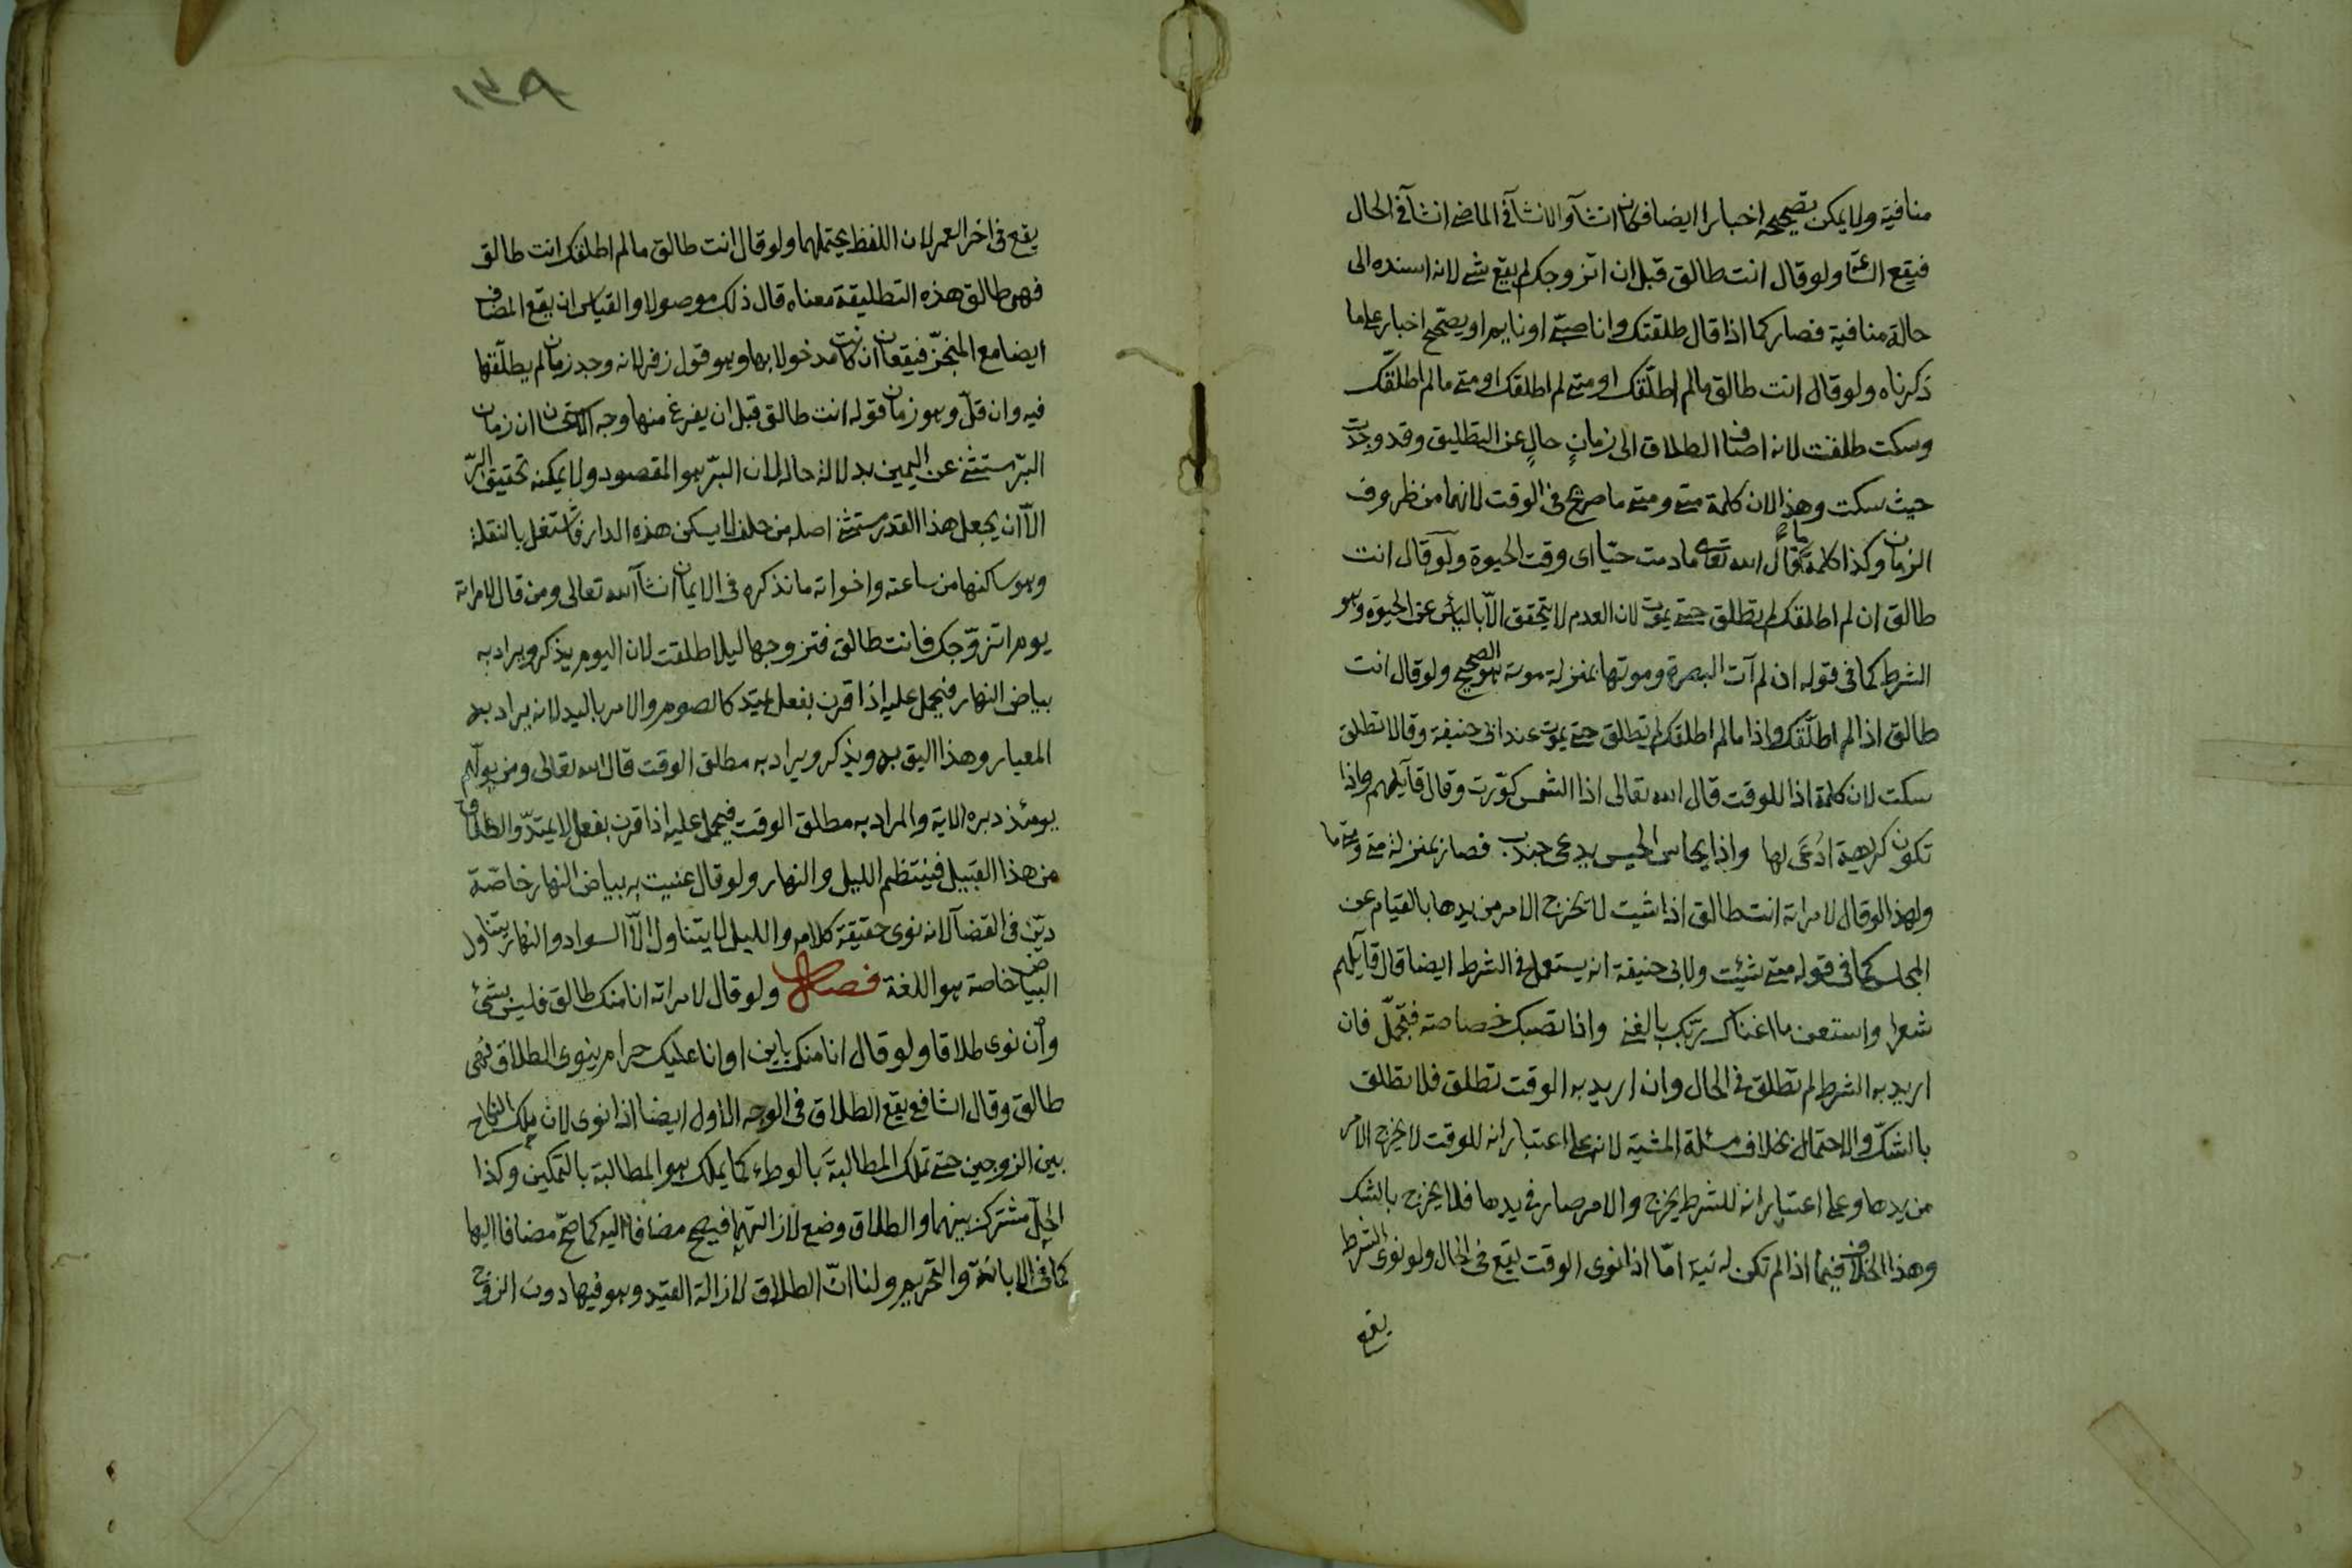 منافية ولا يمكن تصحيحه اخبارا ايضا فكان انشآء والانشآء في الماضي انشآء في الحال
فيقع الساعة ولو قال انت طالق قبل ان اتزوجك لم يقع شئ لانه اسنده الى
حالة منافية فصار كما اذا قال طلقتك وانا صبي او نايم او يصحح اخبارا على ما
ذكرناه ولو قال انت طالق ما لم اطلّقك او متى لم اطلقك او متى ما لم اطلّقك
وسكت طلقت لانه اضاف الطلاق الى زمانٍ خالٍ عن التطليق وقد وجدت
حيث سكت وهذا لان كلمة متى ومتى ما صريح في الوقت لانهما من ظروف
الزمان وكذا كلمة ما قال الله تعالى ما دمت حيّا اى وقت الحيوة ولو قال انت
طالق ان لم اطلقك لم تطلق حتى يموت لان العدم لا يتحقق الّا بالياس عن الحيوة وهو
الشرط كما في قوله ان لم آت البصرة وموتها بمنزلة موته هو الصحيح ولو قال انت
طالق اذا لم اطلّقك واذا ما لم اطلقك لم تطلق حتى يموت عند ابي حنيفة وقالا تطلق
سكت لان كلمة اذا للوقت قال الله تعالى اذا الشمس كوّرت وقال قآيلهم واذا
تكون كريهة اُدعَى لها واذا يحاس الحيس يدعى جندب فصار بمنزلة متى ومتى ما
ولهذا لو قال لامراته انت طالق اذا شيت لا يخرج الامر من يدها بالقيام عن
المجلس كما في قوله متى شيئت ولابي حنيفة انه يستعمل في الشرط ايضا قال قآيلهم
شعرا واستغن ما اغناك ربّك بالغنى واذا تصبك خصاصة فتجمّل فان
اريد به الشرط لم تطلق في الحال وان اريد به الوقت تطلق فلا تطلق
بالشكّ والاحتمال بخلاف مسئلة المشية لانه على اعتبار انه للوقت لا يخرج الامر
من يدها وعلى اعتبار انه للشرط يخرج والامر صار في يدها فلا يخرج بالشك
وهذا الخلاف فيما اذا لم تكن له نية امّا اذا نوى الوقت يقع في الحال ولو نوى الشرط
يقع
١٣٩
يقع في اخر العمر لان اللفظ يحتملهما ولو قال انت طالق ما لم اطلقك انت طالق
فهي طالق هذه التطليقة معناه قال ذلك موصولا والقياس ان يقع المضاف
ايضا مع المنجّز فيقعان ان كانت مدخولا بها وهو قول زفر لانه وجد زمان لم يطلّقها
فيه وان قلّ وهو زمان قوله انت طالق قبل ان يفرغ منها وجه الاستحسان ان زمان
البرّ مستثنى عن اليمين بدلالة حاله لان البرّ هو المقصود ولا يمكنه تحقيق البرّ
الّا ان يجعل هذا القدر مستثنى اصله من حلف لا يسكن هذه الدار فاشتغل بالنقلة
وهو ساكنها من ساعته واخواته ما نذكره في الايمان انشآ الله تعالى ومن قال لامراته
يوم اتزوّجك فانت طالق فتزوجها ليلا طلقت لان اليوم يذكر ويراد به
بياض النهار فيحمل عليه اذا قرن بفعل يمتدّ كالصوم والامر باليد لانه يراد به
المعيار وهذا اليق به ويذكر ويراد به مطلق الوقت قال الله تعالى ومن يولّهم
يومئذ دبره الاية والمراد به مطلق الوقت فيحمل عليه اذا قرن بفعل لا يمتدّ والطلاق
من هذا القبيل فينتظم الليل والنهار ولو قال عنيت به بياض النهار خاصّة
ديّن في القضآ لانه نوى حقيقة كلامه والليل لا يتناول الّا السواد والنهار يتناول
البياض خاصة هو اللغة فصل ولو قال لامراته انا منك طالق فليس بشئ
وان نوى طلاقا ولو قال انا منك باين او انا عليك حرام ينوى الطلاق فهى
طالق وقال الشافعي يقع الطلاق في الوجه الاول ايضا اذا نوى لان ملك النكاح
بين الزوجين حتى تملك المطالبةَ بالوطء كما يملك هو المطالبة بالتمكين وكذا
الحلّ مشترك بينهما والطلاق وضع لازالتهما فيصح مضافا اليه كما صحّ مضافا اليها
كما في الابانة والتحريم ولنا انّ الطلاق لازالة القيد وهو فيها دون الزوج